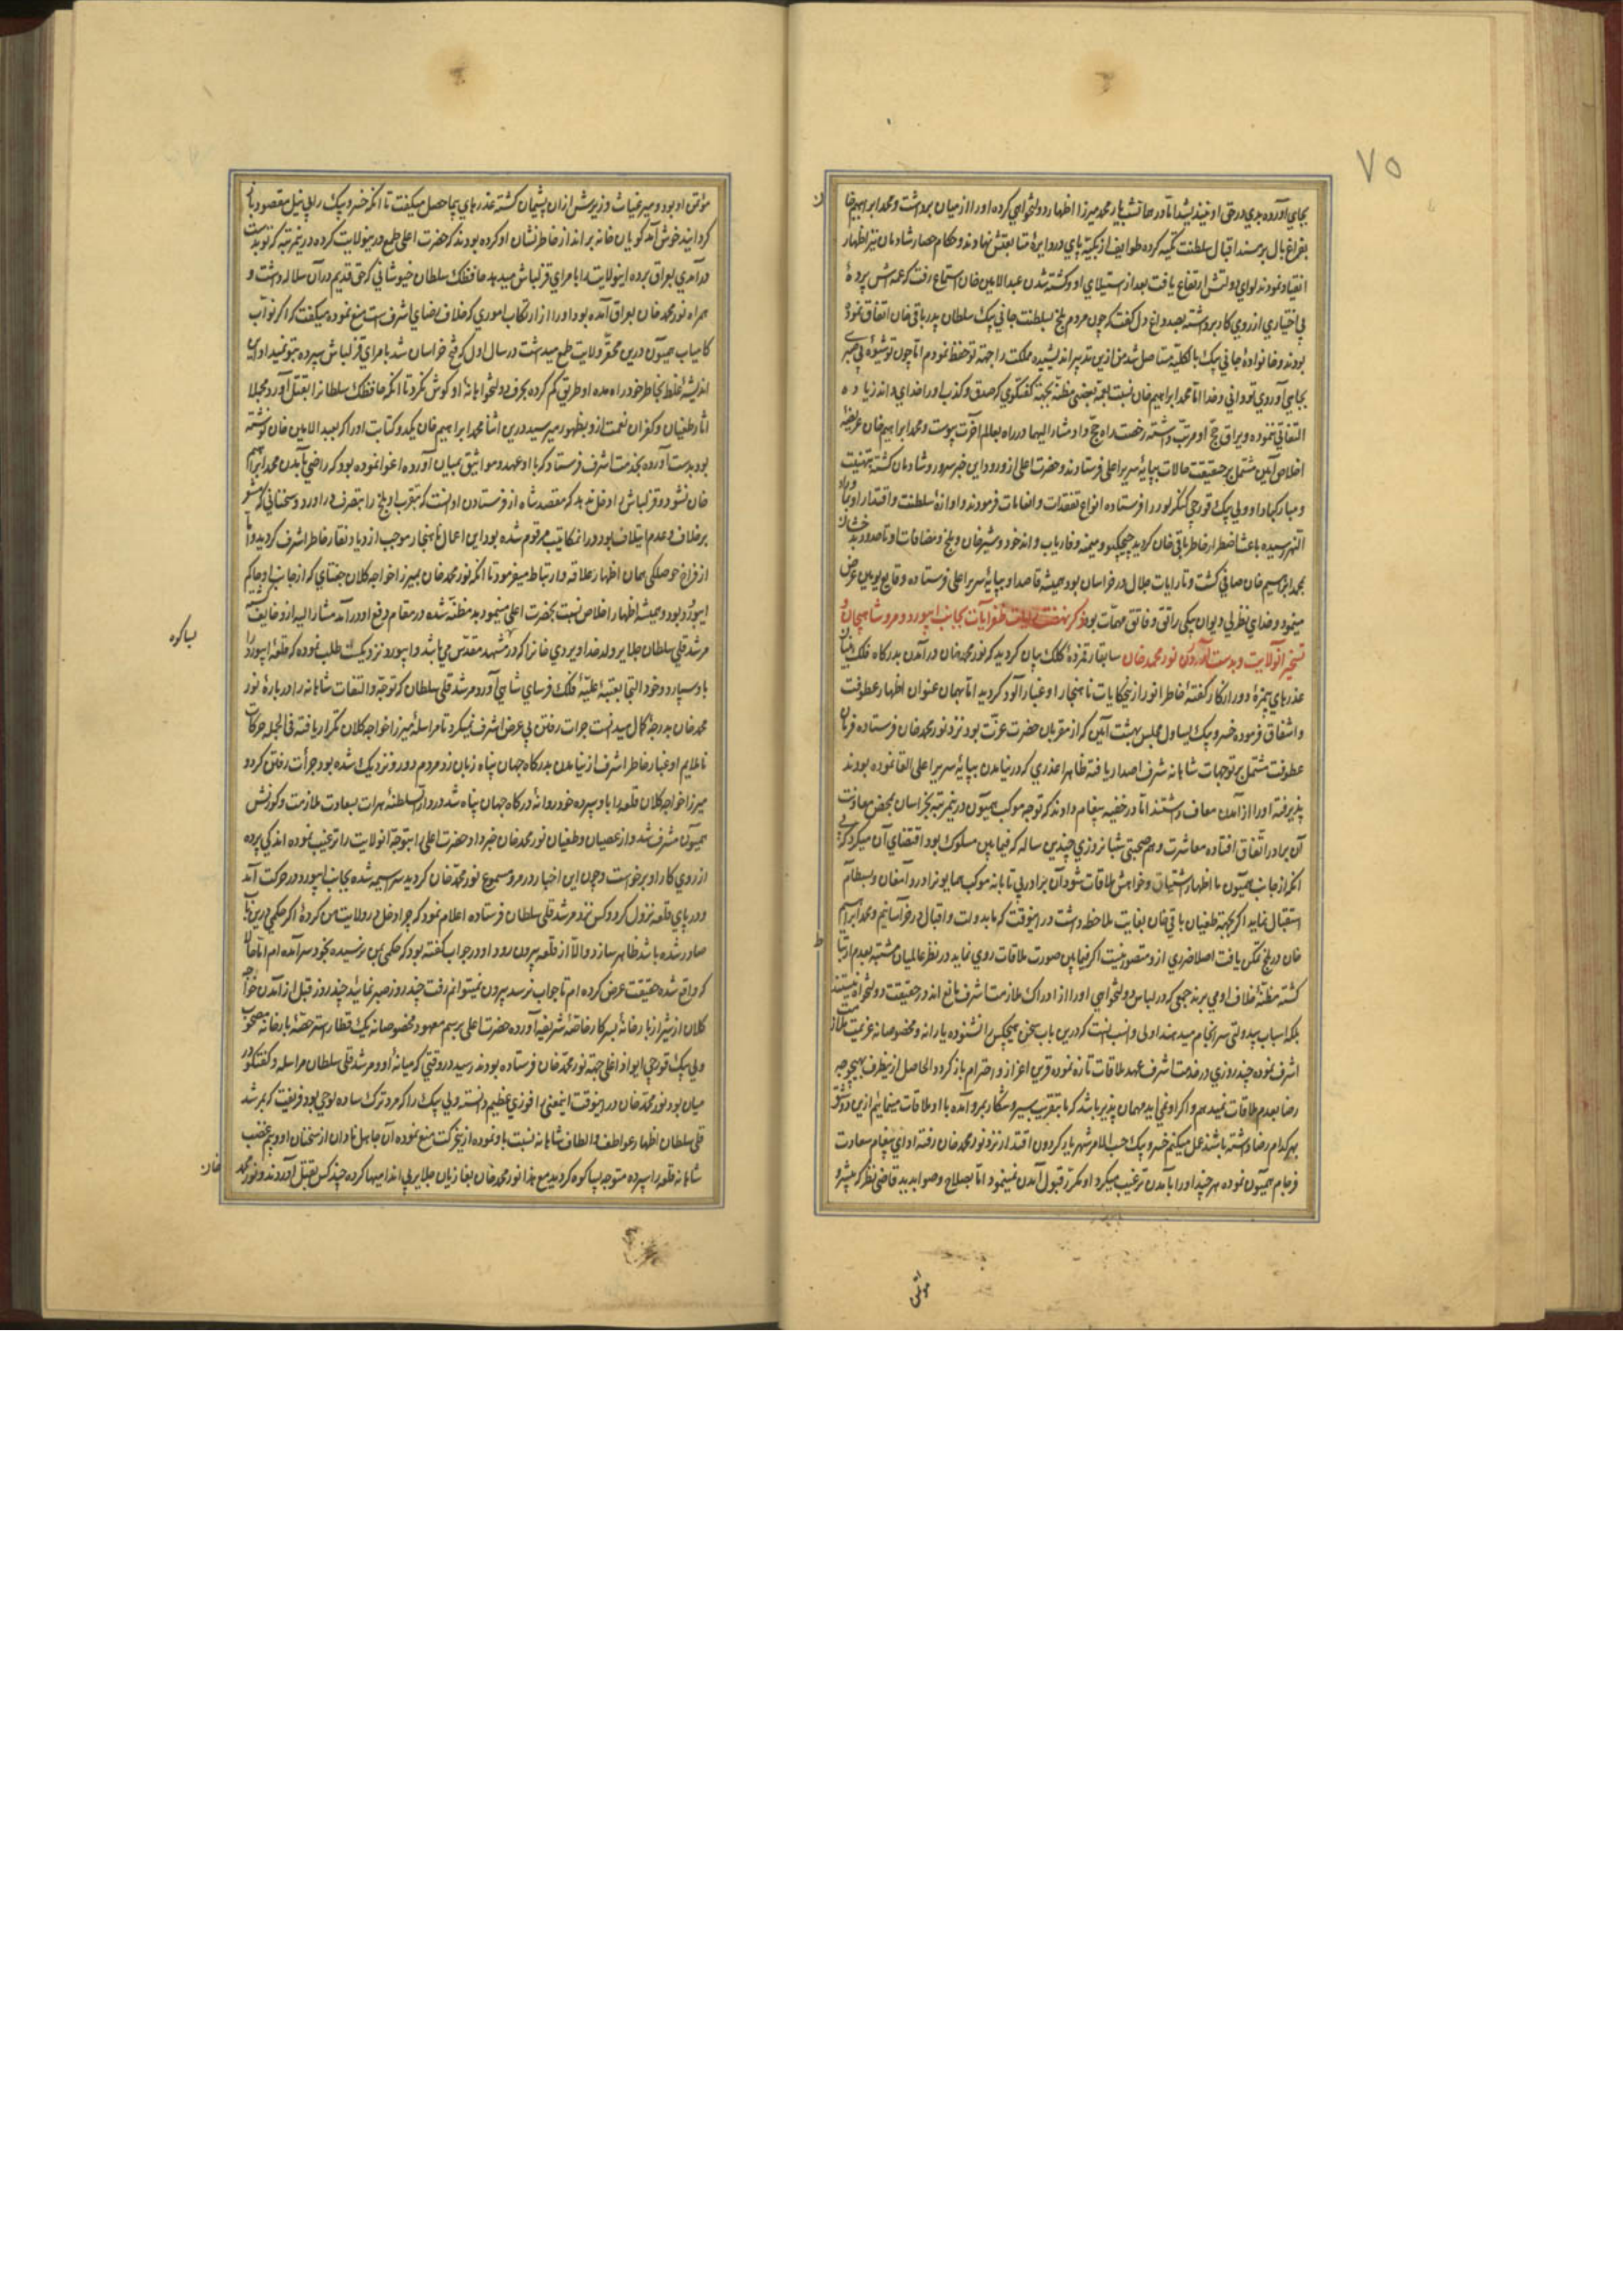 ۷۵
بجاي آورده بدي در حق او نينديشد اما در خاتم شهيار محمد ميرزا اظهار دولتخواهي کرده او را از ميان برداشت و محمد ابراهيم خان
بفراغ بال بر مسند اقبال سلطنت تکيه کرده طوايف ازبکيه پاي در دايرهٔ متابعتش نهادند و حکام حصار شادمان نيز اظهار
انقياد نمودند لواي دولتش ارتفاع يافت بعد از استيلاي او و کشته شدن عبدالامين خان استماع رفت که عمه‌اش پردهٔ
بي اختياري از روي کار برداشته بصد داغ دل گفت که چون مردم بلخ بسلطنت جاني بيک سلطان پدر باقي خان اتفاق نموده
بودند و خانوادهٔ جاني بيک بالکليه مستاصل شد من ازين تدبير انديشيده مملکت را جهة تو حفظ نمودم اما چون تو شيوهٔ بي
بجاي آوردي تو داني و خدا اما محمد ابراهيم خان نسبت بعمه بجهة گفتگوي که صدق و کذب او را خداي داند زياده
التفاتي ننموده و يراق حج او مرتب داشته رخصت راه حج داد و مشاراليها در راه بعالم آخرت پيوست و محمد ابراهيم خان عريضه
اخلاص آيين مشتمل بر حقيقت حالات بپايهٔ سرير اعلي فرستادند و حضرت اعلي از ورود اين خبر مسرور و شادمان گشته بتهنيت
و مبارکباد او ولي بيک قورچي را فرستاده انواع تفقدات و انعامات فرمودند و آوازهٔ سلطنت و اقتدار او
النهر رسيده باعث اضطراب خاطر باقي خان گرديد چيچکتو و ميمنه و فارياب و اندخود و شبرغان و بلخ و مضافات او تا حدود بدخشان
بمحمد ابراهيم خان صافي گشت و تا رايات جلال در خراسان بود هميشه قاصد او بپايهٔ سرير اعلي فرستاده وقايع يوميه عرض
مينمود و خداي نظر بي ديوان بيگي راتق و فاتق مهمات بود ذکر نهضت رايات ظفر آيات بجانب ابيورد و مرو شاهيجان و
تسخير آنولايت و بدست آوردن نور محمد خان سابقا رقمزدهٔ کلک بيان گرديد که نور محمد خان در آمدن بدرگاه فلک
عذرهاي بيمزهٔ دور از کار گفته خاطر انور ازين حکايات ناهنجار او غبار آلود گرديد اما بهمان عنوان اظهار عطوفت
و اشفاق فرموده خسرو بيک يساول مجلس بهشت آيين که از مقربان حضرت عزت بود نزد نور محمد خان فرستاده فرمان
عطوفت مشتمل بر توجهات شاهانه شرف اصدار يافته ظاهرا عذري که در نيامدن بپايهٔ سرير اعلي القا نموده بودند
پذيرفته او را از آمدن معاف داشتند اما در خفيه پيغام دادند که توجه موکب هميون درين مرتبه بخراسان بمحض معاونت
آن برادر اتفاق افتاده معاشرت و هم صحبتي شبانروزي چندين ساله که فيمابين مسلوک بود اقتضاي آن ميکرد که
آنکه از جانب هميون ما اظهار اشتياق و خواهش ملاقات شود آن برادر بي تابانه موکب همايون را در دامغان و بسطام
استقبال نمايد اگر بجهة طغيان باقي خان بغايت ملاحظه داشت درينوقت که ما بدولت و اقبال در خراسانيم و محمد ابراهيم
خان در بلخ تمکن يافت اصلا ضرري ازو متصور نيست اگر فيمابين صورت ملاقات روي نمايد در نظر عالميان مشتبه بعدم ارتباط
گشته مظنهٔ خلاف او مي برند جمعي که در لباس دولتخواهي او را از ادراک ملازمت اشرف مانع اند در حقيقت دولتخواه نيستند
بلکه اسباب بيدولتي سرانجام ميدهند اولي و انسب آنست که درين باب سخن هيچکس را نشنوده يارانه و مخصوصانه عزيمت ملازمت
اشرف نموده چند روزي در خدمت اشرف عهد ملاقات تازه نموده قرين اعزاز و احترام باز گردد الحاصل ازين طرف بهيچوجه
رضا بعدم ملاقات نميدهيم و اگر او نمي آيد مهمان پذير باشد که ما بتقريب سير و شکار بمرو آمده با او ملاقات مينمائيم ازين دو شق
بهرکدام رضا داشته باشد عمل ميکنيم خسرو بيک حسب الامر شهريار گردون اقتدار نزد نور محمد خان رفته اداي پيغام سعادت
فرجام هميون نموده هرچند او را بآمدن ترغيب ميکرد او مکرر قبول آمدن نمينمود اما بصلاح و صوابديد قاضي نظر که پيشرو
موتمن
مؤتمن او بود و مير غياث وزيرش ازان پشيمان گشته عذرهاي بيحاصل ميگفت تا آنکه خسرو بيک را بي نيل مقصود باز
گردانيد خوش آمد گويان خانه برانداز خاطرنشان او کرده بودند که حضرت اعلي طمع درينولايت کرده درين مرتبه که تو بدست
در آمدي بعراق برده اينولايت را بامراي قزلباش ميدهد حافظک سلطان خيوشاني که حق قديم در آن سلاله داشت و
همراه نور محمد خان بعراق آمده بود او را از ارتکاب اموري که خلاف رضاي اشرف است منع نموده ميگفت که اگر نواب
کامياب هميون درين محقر ولايت طمع ميداشت در سال اول که فتح خراسان شد بامراي قزلباش سپرده بتو نميداد اين
انديشهٔ غلط بخاطر خود راه مده او طريق گم کرده بحرف دولتخواهانهٔ او گوش نکرد تا آنکه حافظک سلطانرا بقتل آورد مجملا
آثار طغيان و کفران نعمت ازو بظهور ميرسيد درين اثنا محمد ابراهيم خان يکدو کتابت او را که بعبدالامين خان نوشته
بود بدست آورده بخدمت اشرف فرستاد که با او عهود و مواثيق بميان آورده اغوا نموده بود که راضي بآمدن محمد ابراهيم
خان نشود و قزلباش را دخل ندهد که مقصد شاه از فرستادن او آنست که بتقريب او بلخ را بتصرف درآورد و سخناني که مشعر
بر خلاف و عدم ايتلاف بود در آن مکاتيب مرقوم شده بود اين اعمال ناهنجار موجب ازدياد نقار خاطر اشرف گرديد و اما
از فراخ حوصلگي همان اظهار علاقه و ارتباط ميفرمود تا آنکه نور محمد خان بميرزا خواجه کلان جغتاي که از جانب او حاکم
ابيورد بود و هميشه اظهار اخلاص نسبت بحضرت اعلي مينمود بد مظنه شده در مقام دفع او درآمد مشاراليه ازو خايف گشته
مرشد قلي سلطان جلاير ولد خداويردي خانرا که در مشهد مقدس مي باشد و ابيورد نزديک است طلب نموده که قلعهٔ ابيورد را
باو سپارد و خود التجا بعتبهٔ عليهٔ فلک فرساي شاهي آورد مرشد قلي سلطان که توجه و التفات شاهانه را دربارهٔ نور
محمد خان بدرجهٔ کمال ميدانست جرات رفتن بي عرض اشرف نميکرد تا مراسلهٔ ميرزا خواجه کلان تکرار يافته في الجمله حرکات
ناملايم او و غبار خاطر اشرف از نيامدن بدرگاه جهان پناه زبان زد مردم دور و نزديک شده بود جرأت رفتن کرد و
ميرزا خواجه کلان قلعه را باو سپرده خود روانهٔ درگاه جهان پناه شد در دارالسلطنهٔ هرات بسعادت ملازمت و کورنش
هميون مشرف شد و از عصيان و طغيان نور محمد خان خبر داد و حضرت اعلي را بتوجه آنولايت را ترغيب نموده اندکي پرده
از روي کار او برخواست و چون اين اخبار در مرو مسموع نور محمد خان گرديد سراسيمه شده بجانب ابيورد در حرکت آمد
و در پاي قلعه نزول کرد و کس نزد مرشد قلي سلطان فرستاده اعلام نمود که چرا دخل در ولايت من کردهٔ اگر حکمي درين باب
صادر شده باشد ظاهر سازد والا از قلعه بيرون رود او در جواب گفته بود که حکمي بمن نرسيده بخود سر آمده ام اما چون
که واقع شده حقيقت عرض کرده ام تا جواب نرسد بيرون نميتوانم رفت چند روز صبر نمائيد چند روز قبل از آمدن خواجه
کلان از شيراز بارخانهٔ بسرکار خاصهٔ شريفه آورده حضرت اعلي برسم معهود مخصوصانه يک قطار استر حصهٔ بارخانه مصحوب
ولي بيک قورچي ايواوغلي جهة نور محمد خان فرستاده بودند رسيد در وقتي که ميانهٔ او و مرشد قلي سلطان مراسله و گفتگو در
ميان بود نور محمد خان درينوقت اينمعني را فوزي عظيم دانسته ولي بيک را که مرد ترک ساده لوحي بود فريفت که بمرشد
قلي سلطان اظهار عواطف و الطاف شاهانه نسبت باو نموده ازين حرکت منع نموده آن جاهل نادان از سخنان او و بيم غضب
شاهانه قلعه را سپرده متوجه پساکوه گرديد مع هذا نور محمد خان بغازيان جلاير بي انداميها کرده چند کس بقتل آوردند و نور محمد
خان
پساکوه